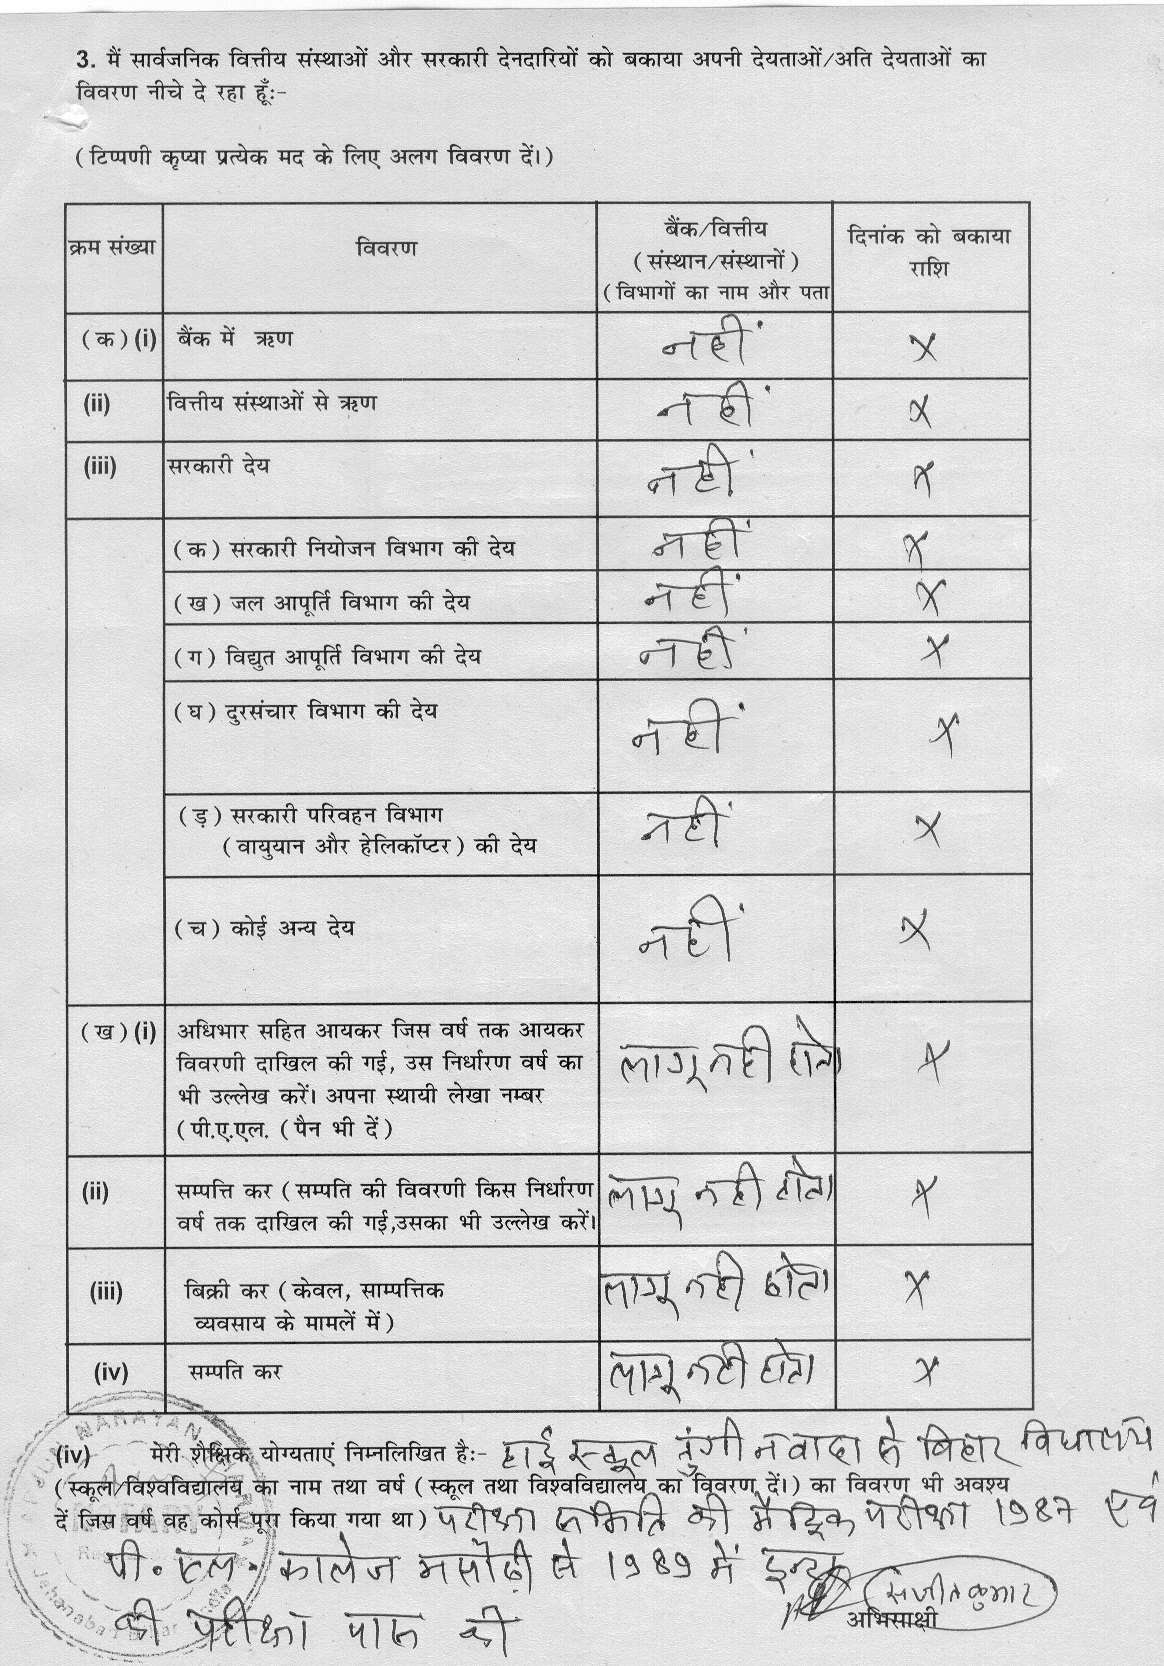 3. मैं सार्वजनिक वित्तीय संस्थाओं और सरकारी देनदारियों को बकाया अपनी देयताओं/अति देयताओं का
विवरण नीचे दे रहा हूँः-
(टिप्पणी कृप्या प्रत्येक मद के लिए अलग विवरण दें।)
क्रम संख्या
विवरण
बैंक/वित्तीय
(संस्थान/संस्थानों)
(विभागों का नाम और पता
दिनांक को बकाया
राशि
(क) (i) बैंक में ऋण नहीं x
(ii) वित्तीय संस्थाओं से ऋण नहीं x
(iii) सरकारी देय नहीं x
(क) सरकारी नियोजन विभाग की देय नहीं x
(ख) जल आपूर्ति विभाग की देय नहीं x
(ग) विद्युत आपूर्ति विभाग की देय नहीं x
(घ) दुरसंचार विभाग की देय नहीं x
(ड़) सरकारी परिवहन विभाग
(वायुयान और हेलिकॉप्टर) की देय नहीं x
(च) कोई अन्य देय नहीं x
(ख) (i) अधिभार सहित आयकर जिस वर्ष तक आयकर
विवरणी दाखिल की गई, उस निर्धारण वर्ष का
भी उल्लेख करें। अपना स्थायी लेखा नम्बर
(पी.ए.एल. (पैन भी दें)
लागू नही होता x
(ii) सम्पत्ति कर (सम्पति की विवरणी किस निर्धारण
वर्ष तक दाखिल की गई,उसका भी उल्लेख करें।
लागू नही होता x
(iii) बिक्री कर (केवल, साम्पत्तिक
व्यवसाय के मामलें में)
लागू नही होता x
(iv) सम्पति कर लागू नही होता x
(iv) मेरी शैक्षिक योग्यताएं निम्नलिखित हैः- हाई स्कूल तुंगी नवादा से बिहार विधालय
(स्कूल/विश्वविद्यालय का नाम तथा वर्ष (स्कूल तथा विश्वविद्यालय का विवरण दें।) का विवरण भी अवश्य
दें जिस वर्ष वह कोर्स पूरा किया गया था) परीक्षा समिति की मैट्रिक परीक्षा 1987 एवं
पी. एल. कालेज मसौढ़ी से 1989 में इन्टर
की परीक्षा पास की
संजीत कुमार
अभिसाक्षी
NARAYAN
Jahanabad